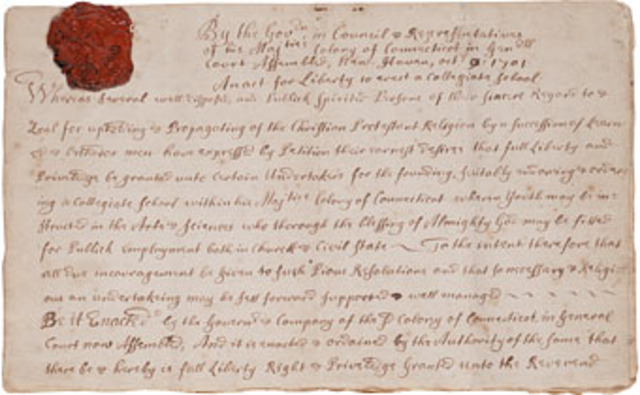 By the Govrn in Council & Representatives
of his Majties Colony of Connecticut in Genrll
Court Assembled, New-Haven, octr 9: 1701
An act for Liberty to erect a Collegiate School.
Whereas Several well disposed, and Publick Spirited Persons of their Sincere Regard to &
Zeal for upholding & Propagating of the Christian Protestant Religion by a succession of Learn
ed & Orthodox men have expressed by Petition their earnest desires that full Liberty and
Priviledge be granted unto Certain Undertakers for the founding, suitably endowing & order
ing a Collegiate School within his Majties Colony of Connecticut wherein Youth may be in
structed in the Arts & Sciences who thorough the blessing of Almighty God may be fitted
for Publick employment both in Church & Civil State To the intent therefore that
all due incouragement be Given to such Pious Resolutions and that so necessary & Religi
ous an undertaking may be sett forward supported & well managed
Be it Enacted by the Governr & Company of the sd Colony of Connecticut, in General
Court now Assembled, And it is enacted & ordained by the Authority of the same that
there be & hereby is full Liberty Right & Priviledge Granted unto the Reverend